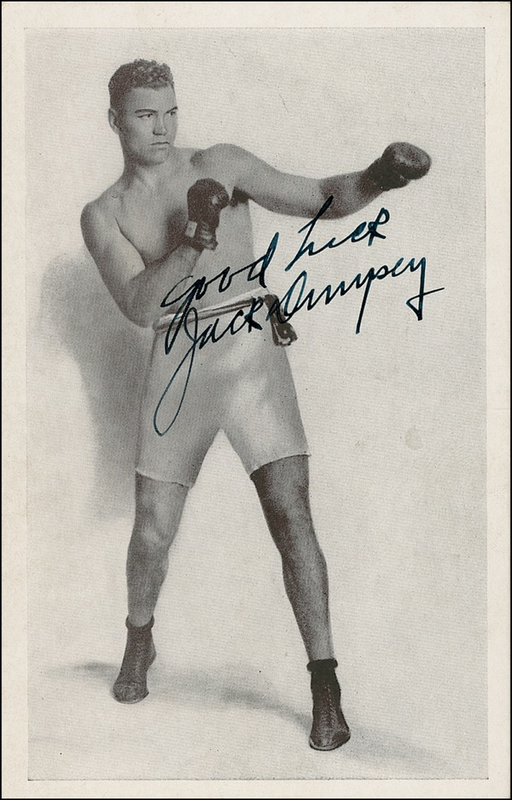 Good Luck
Jack Dempsey